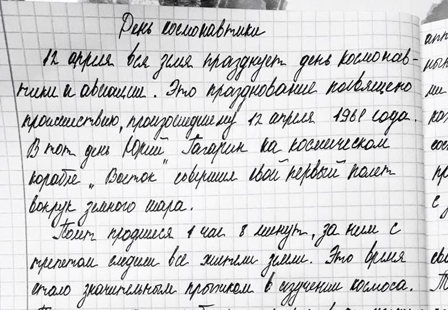 День космонавтики
12 апреля вся земля празднует день космонав-
тики и авиации. Это празднование посвящено
происшествию, произошедшему 12 апреля 1961 года.
В тот день Юрий Гагарин на космическом
корабле „Восток" совершил свой первый полет
вокруг земного шара.
Полет продлился 1 час 8 минут, за ним с
трепетом следили все жители земли. Это время
стало значительным прыжком в изучении космоса.